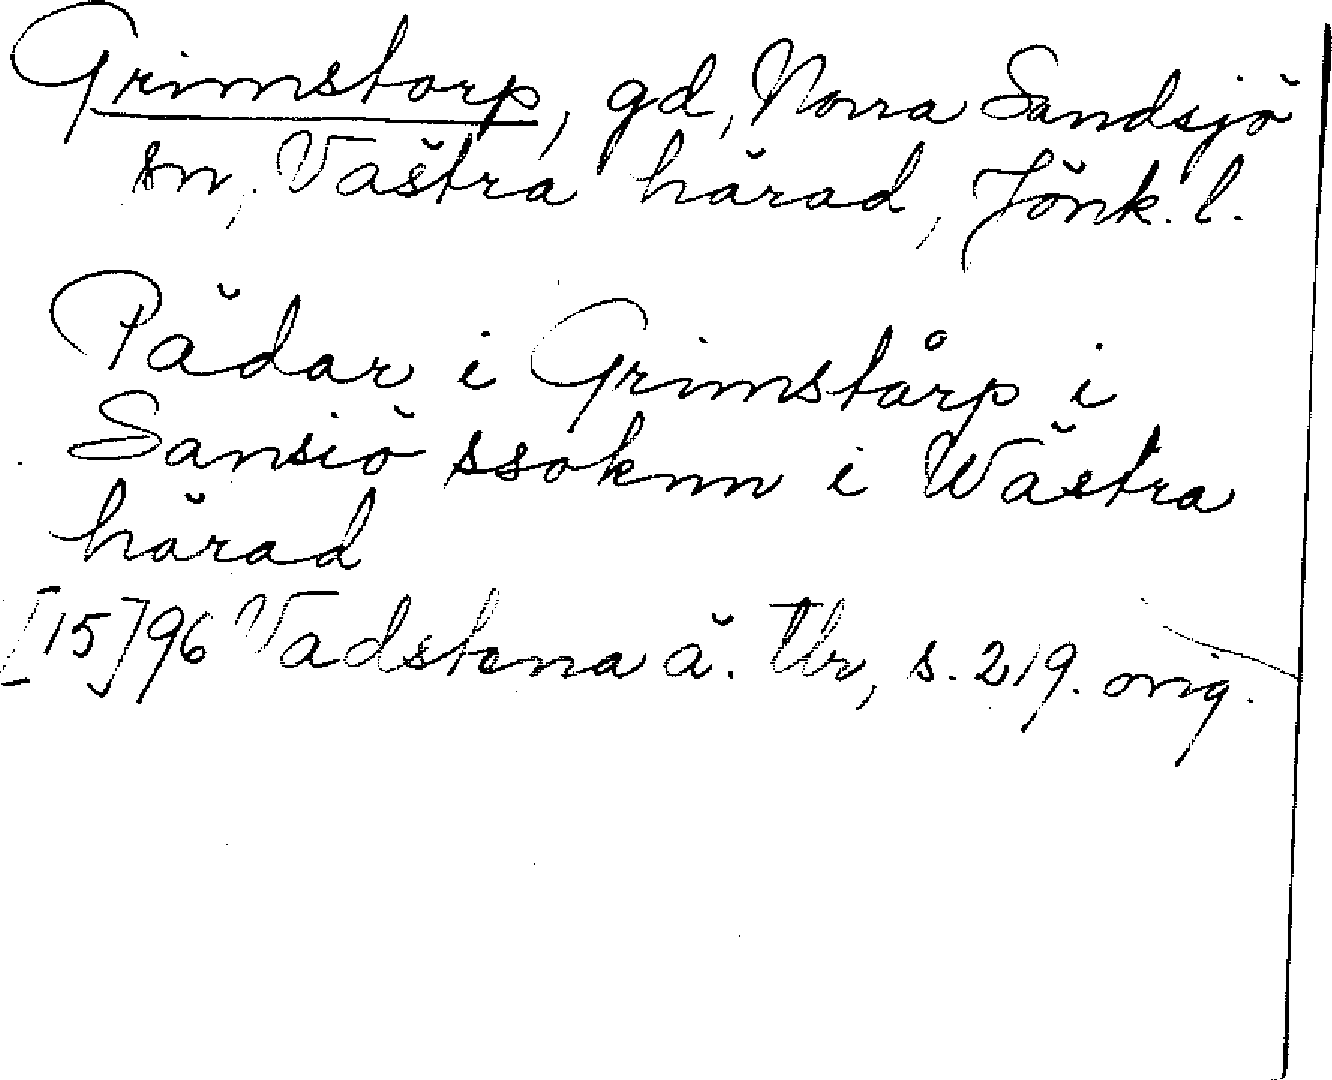 Grimstorp, gd, Norra Sandsjö
sn, Västra härad, Jönk. l.
Pädar i Grimstårp i
Sansiö ssoknn i Wästra
härad
[15]96 Vadstena ä. Ur, s. 219. orig.